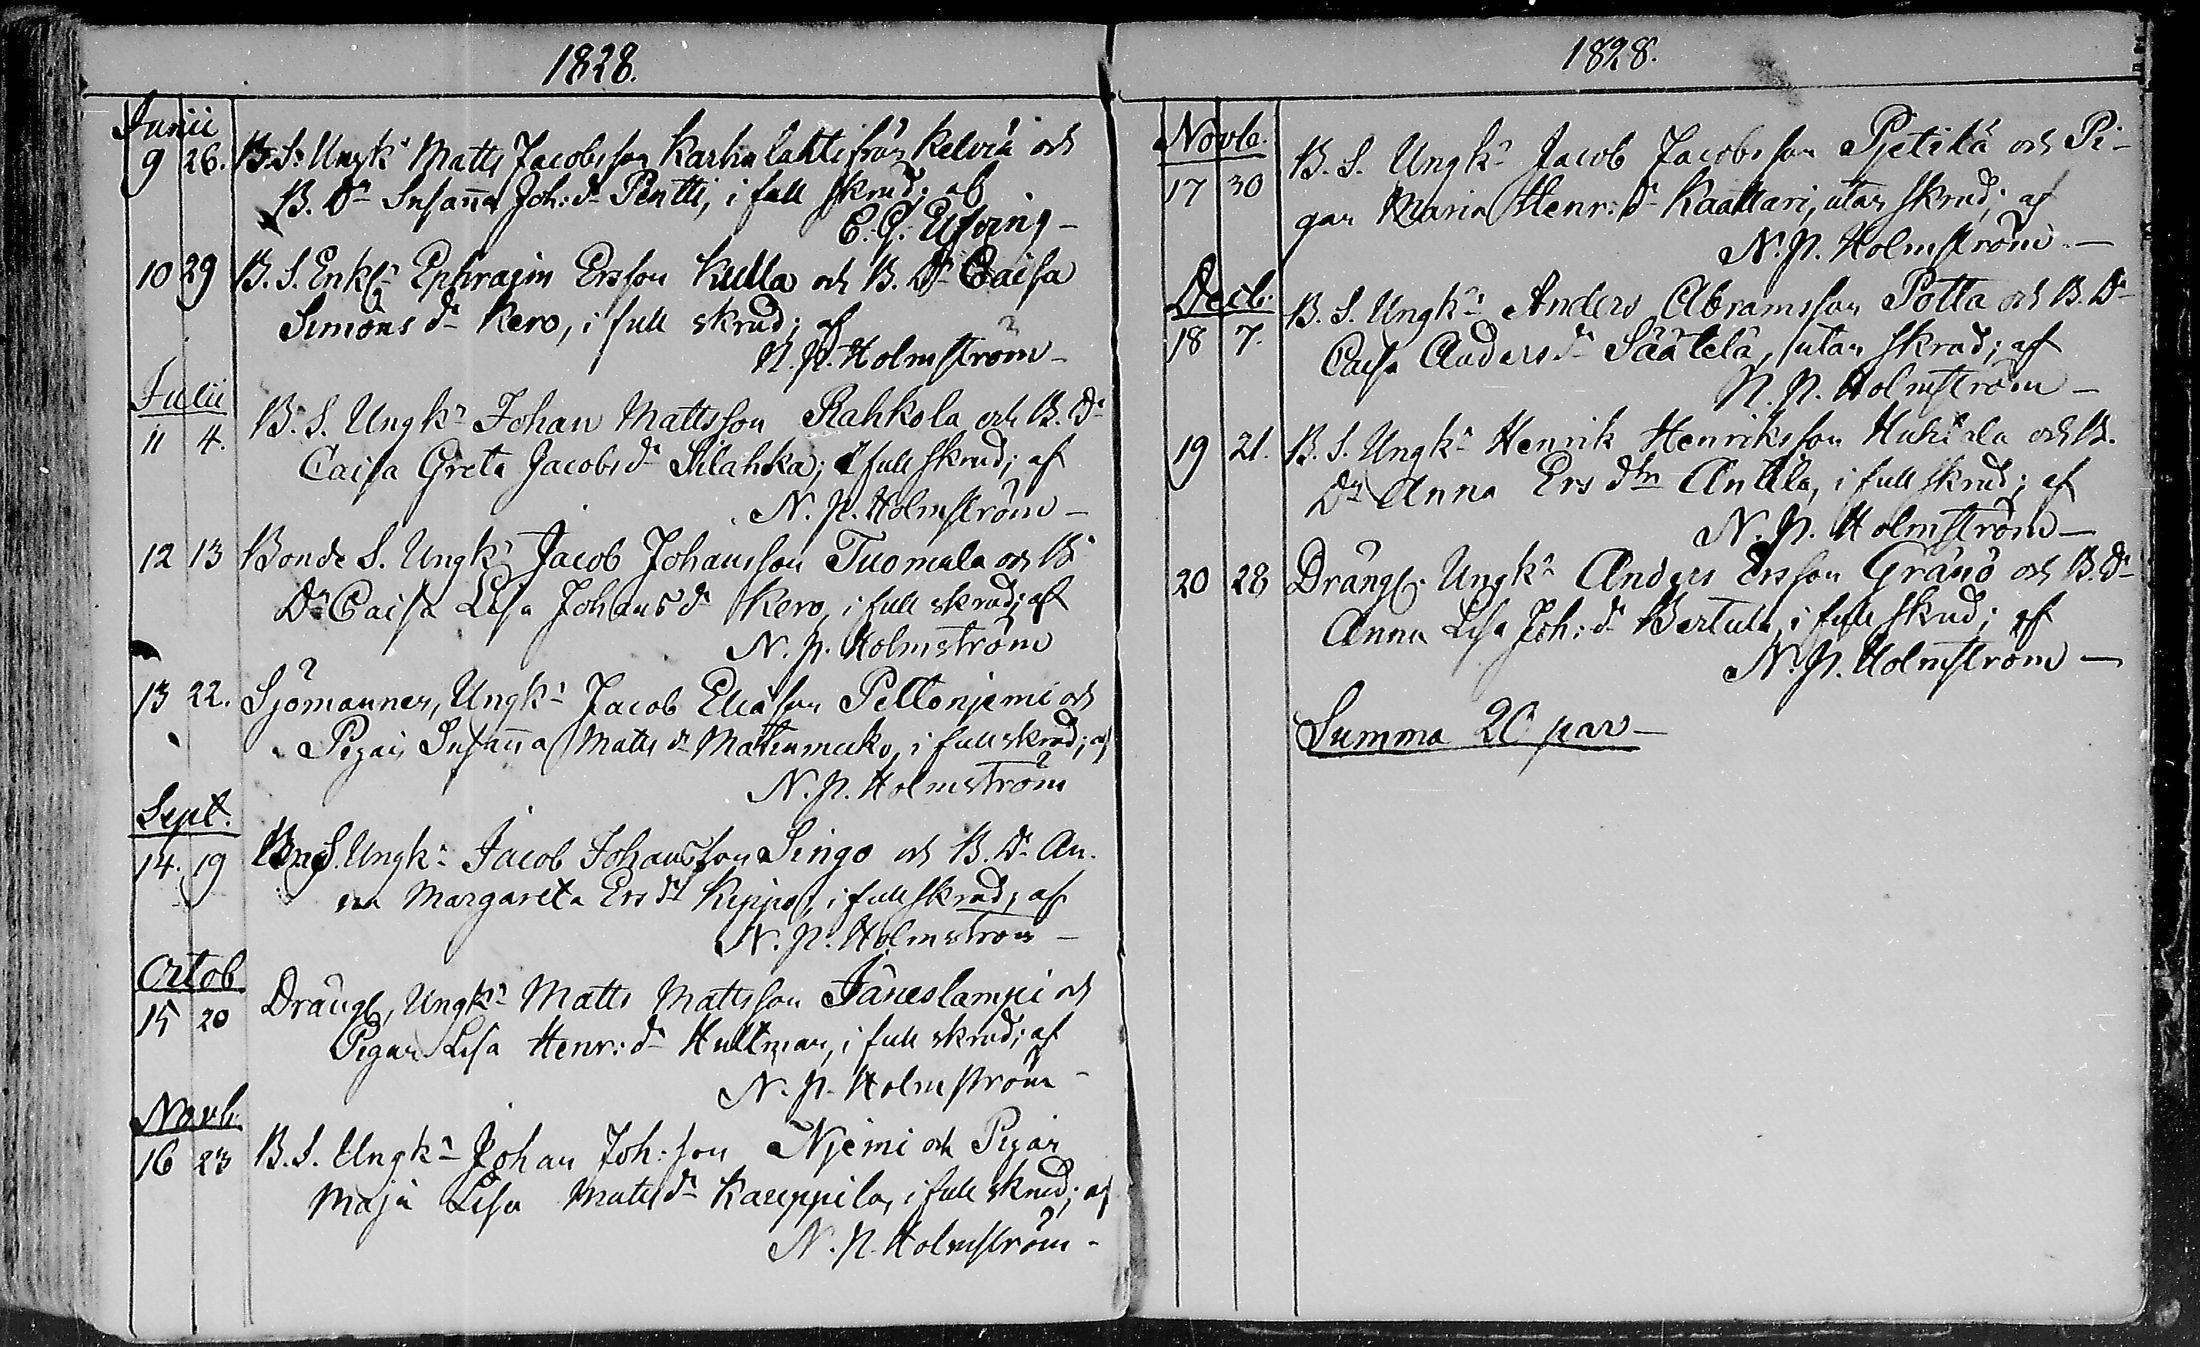 1828.
Junii
9 26. B. S. Ungk: Matts Jacobsson Karhulahti från Kelviå och
B. Dr Susanna Joh: dr Pentti, i full skrud; af
10 29 B. S. Enkl: Ephraim Ersson Kulla och B. Dr Caisa
Simons dr Kero, i full skrud; af
N. N. Holmström –
Julii
11 4. B. S. Ungkn Johan Mattsson Rahkola och B. Dr
Caisa Greta Jacobs dr Silahka; i full skrud; af
N. N. Holmström –
12 13 Bonde S. Ungkn Jacob Johansson Tuomala och B
Dr Caisa Lisa Johans dr Kero, i full skrud; af
N. N. Holmström
13 22. Sjömannen, Ungkn Jacob Eliasson Peltonjemi och
Pigan Susanna Matts dr i full skrud; af
N. N. Holmström
Sept.
14. 19 S. Ungkn Jacob Johansson Singo och B. Dr An-
na Margareta Ers dr Keppo, i full skrud; af
N. N. Holmström –
Octob
15 20 Drängen, Ungkn Matts Mattsson Jäneslampi och
Pigan Lisa Henr: dr Hultman, i full skrud; af
N. N. Holmström –
Novb.
16 23 B. S. Ungkn Johan Joh: son Njemi och Pigan
Maja Lisa Matts dr Kauppila, i full skrud; af
N. N. Holmström –
1828.
Novb.
17 30 B. S. Ungkn Jacob Jacobsson Pjetilä och Pi-
gan Maria Henr: dr Kaattari, utan skrud; af
N. N. Holmström. –
Decb:
18 7. B. S. Ungkn Anders Abramsson Potta och B. Dr
Caisa Anders dr Säätelä, utan skrud; af
N. N. Holmström –
19 21. B. S. Ungkn Henrik Henriksson Huhtala och B.
Dr Anna Ers dr Anttila, i full skrud; af
N. N. Holmström –
20 28 Drängen Ungkn Anders Ersson Gränö och B. Dr
Anna Lisa Joh: dr Bertula, i full skrud; af
N. N. Holmström –
Summa 20 par –